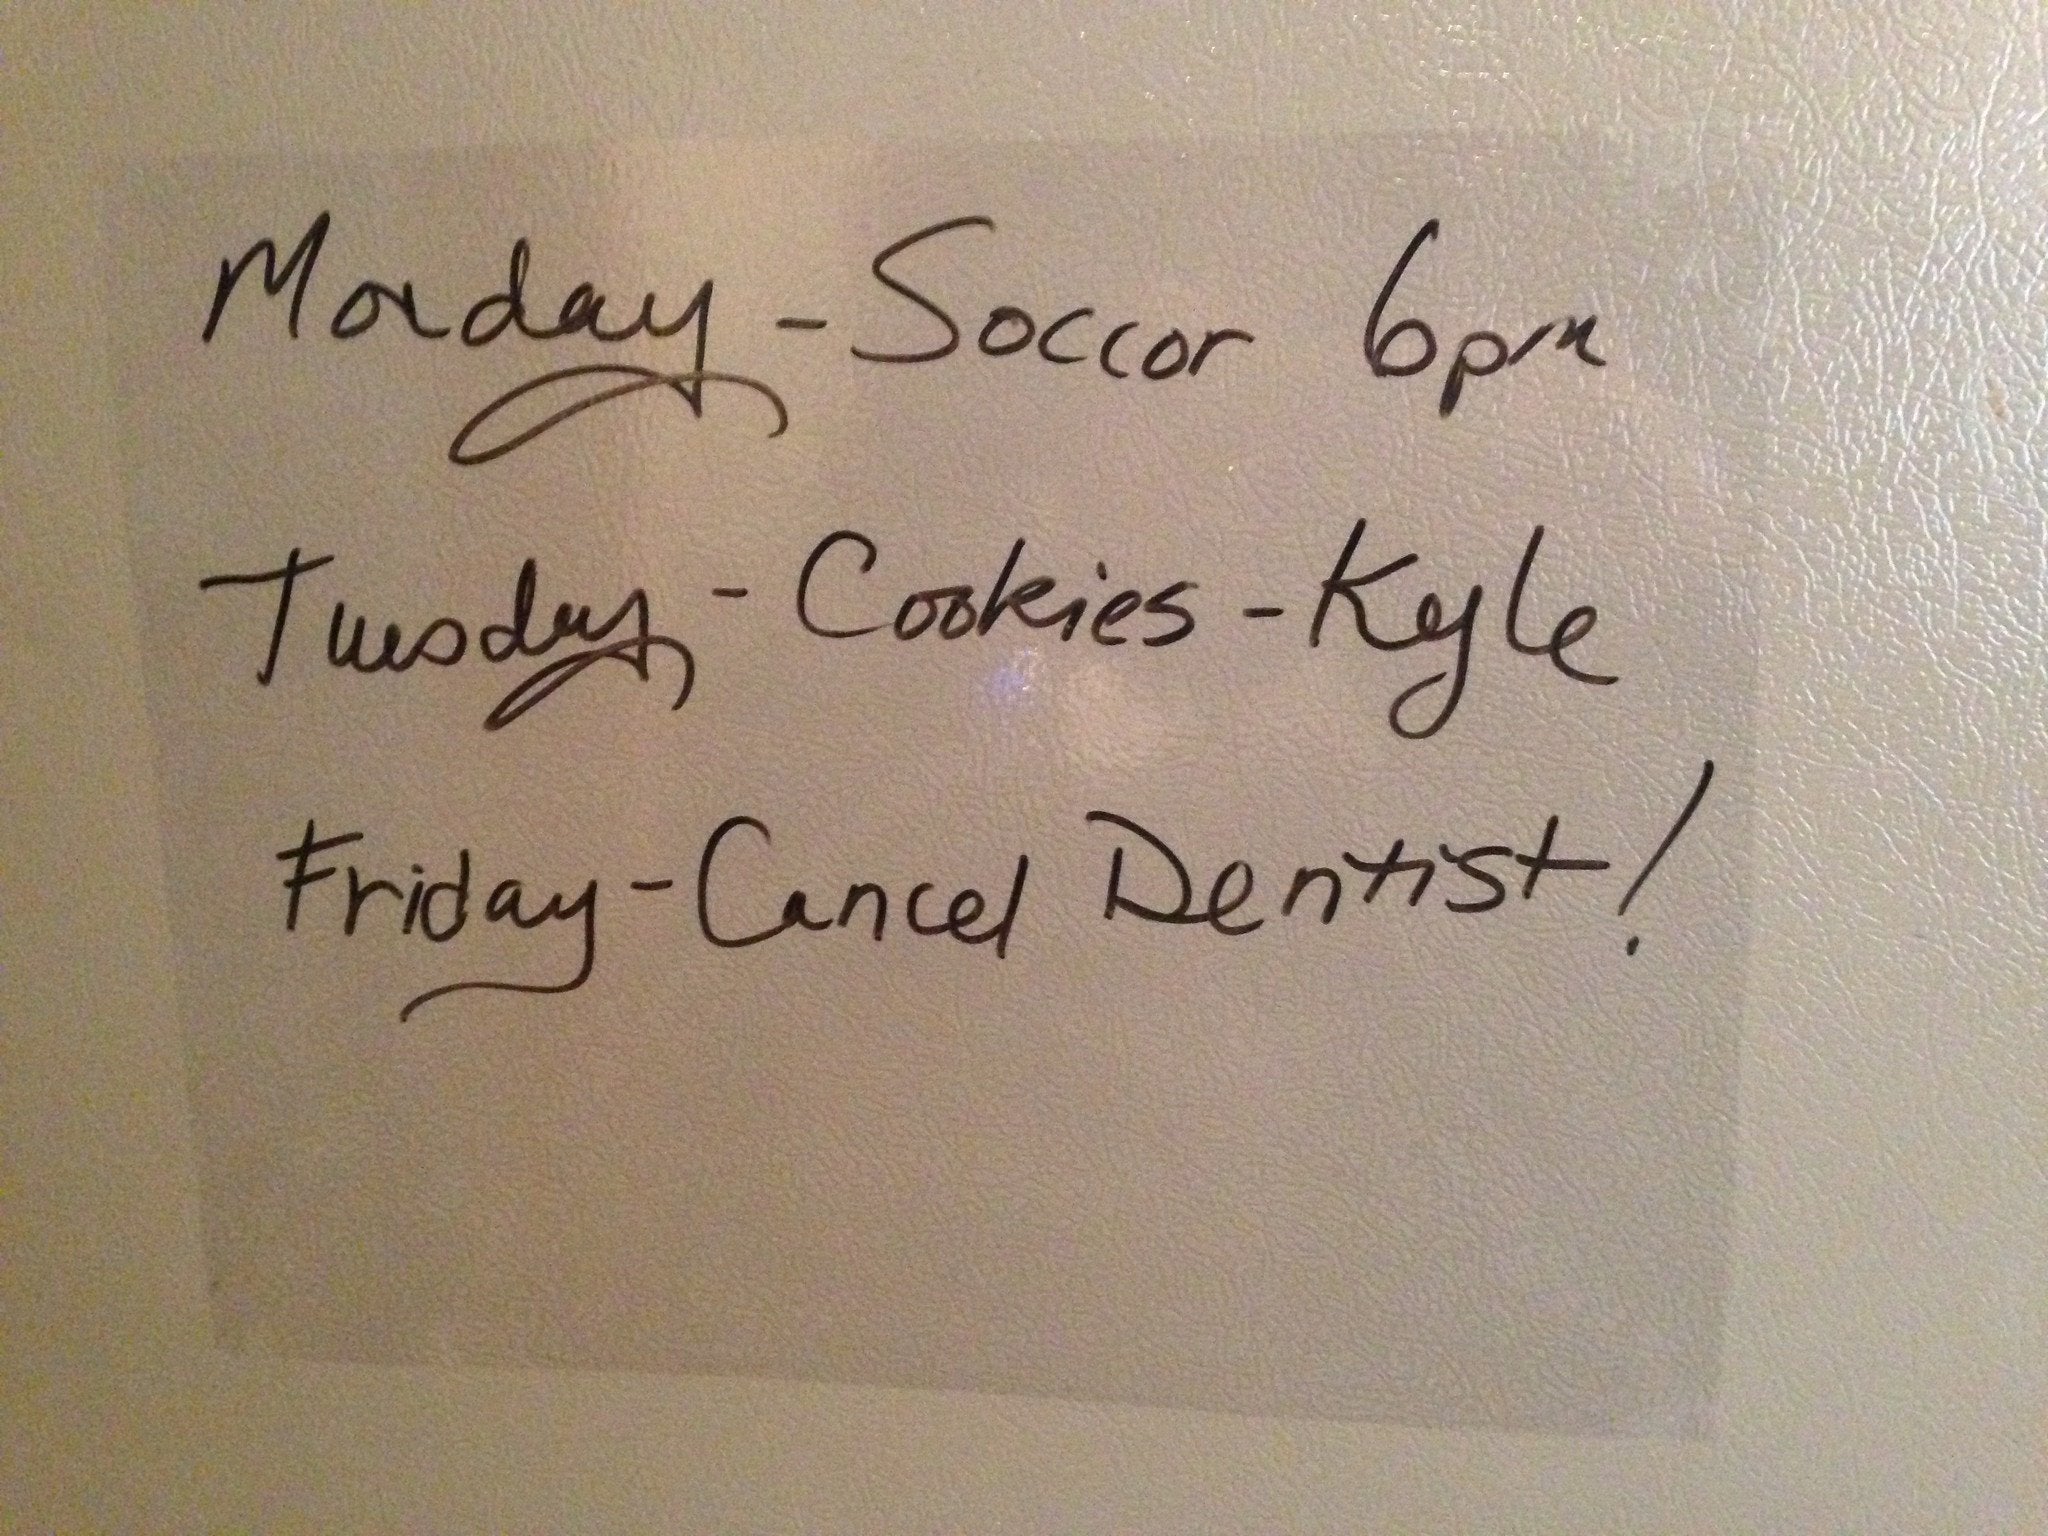 Monday - Soccor 6pm
Tuesday - Cookies - Kyle
Friday - Cancel Dentist!